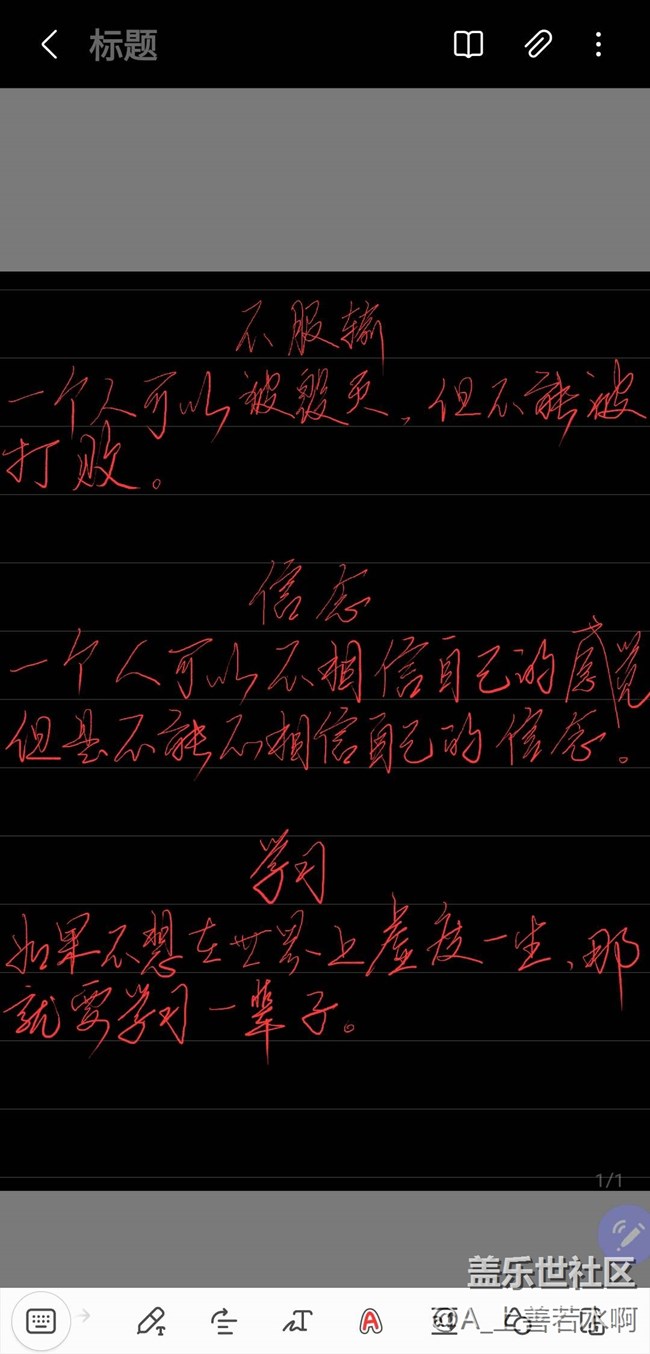 标题
不服输
一个人可以被毁灭，但不能被
打败。
信念
一个人可以不相信自己的感觉
但是不能不相信自己的信念。
学习
如果不想在世界上虚度一生、那
就要学习一辈子。
1/1
盖乐世社区
@A_上善若水啊